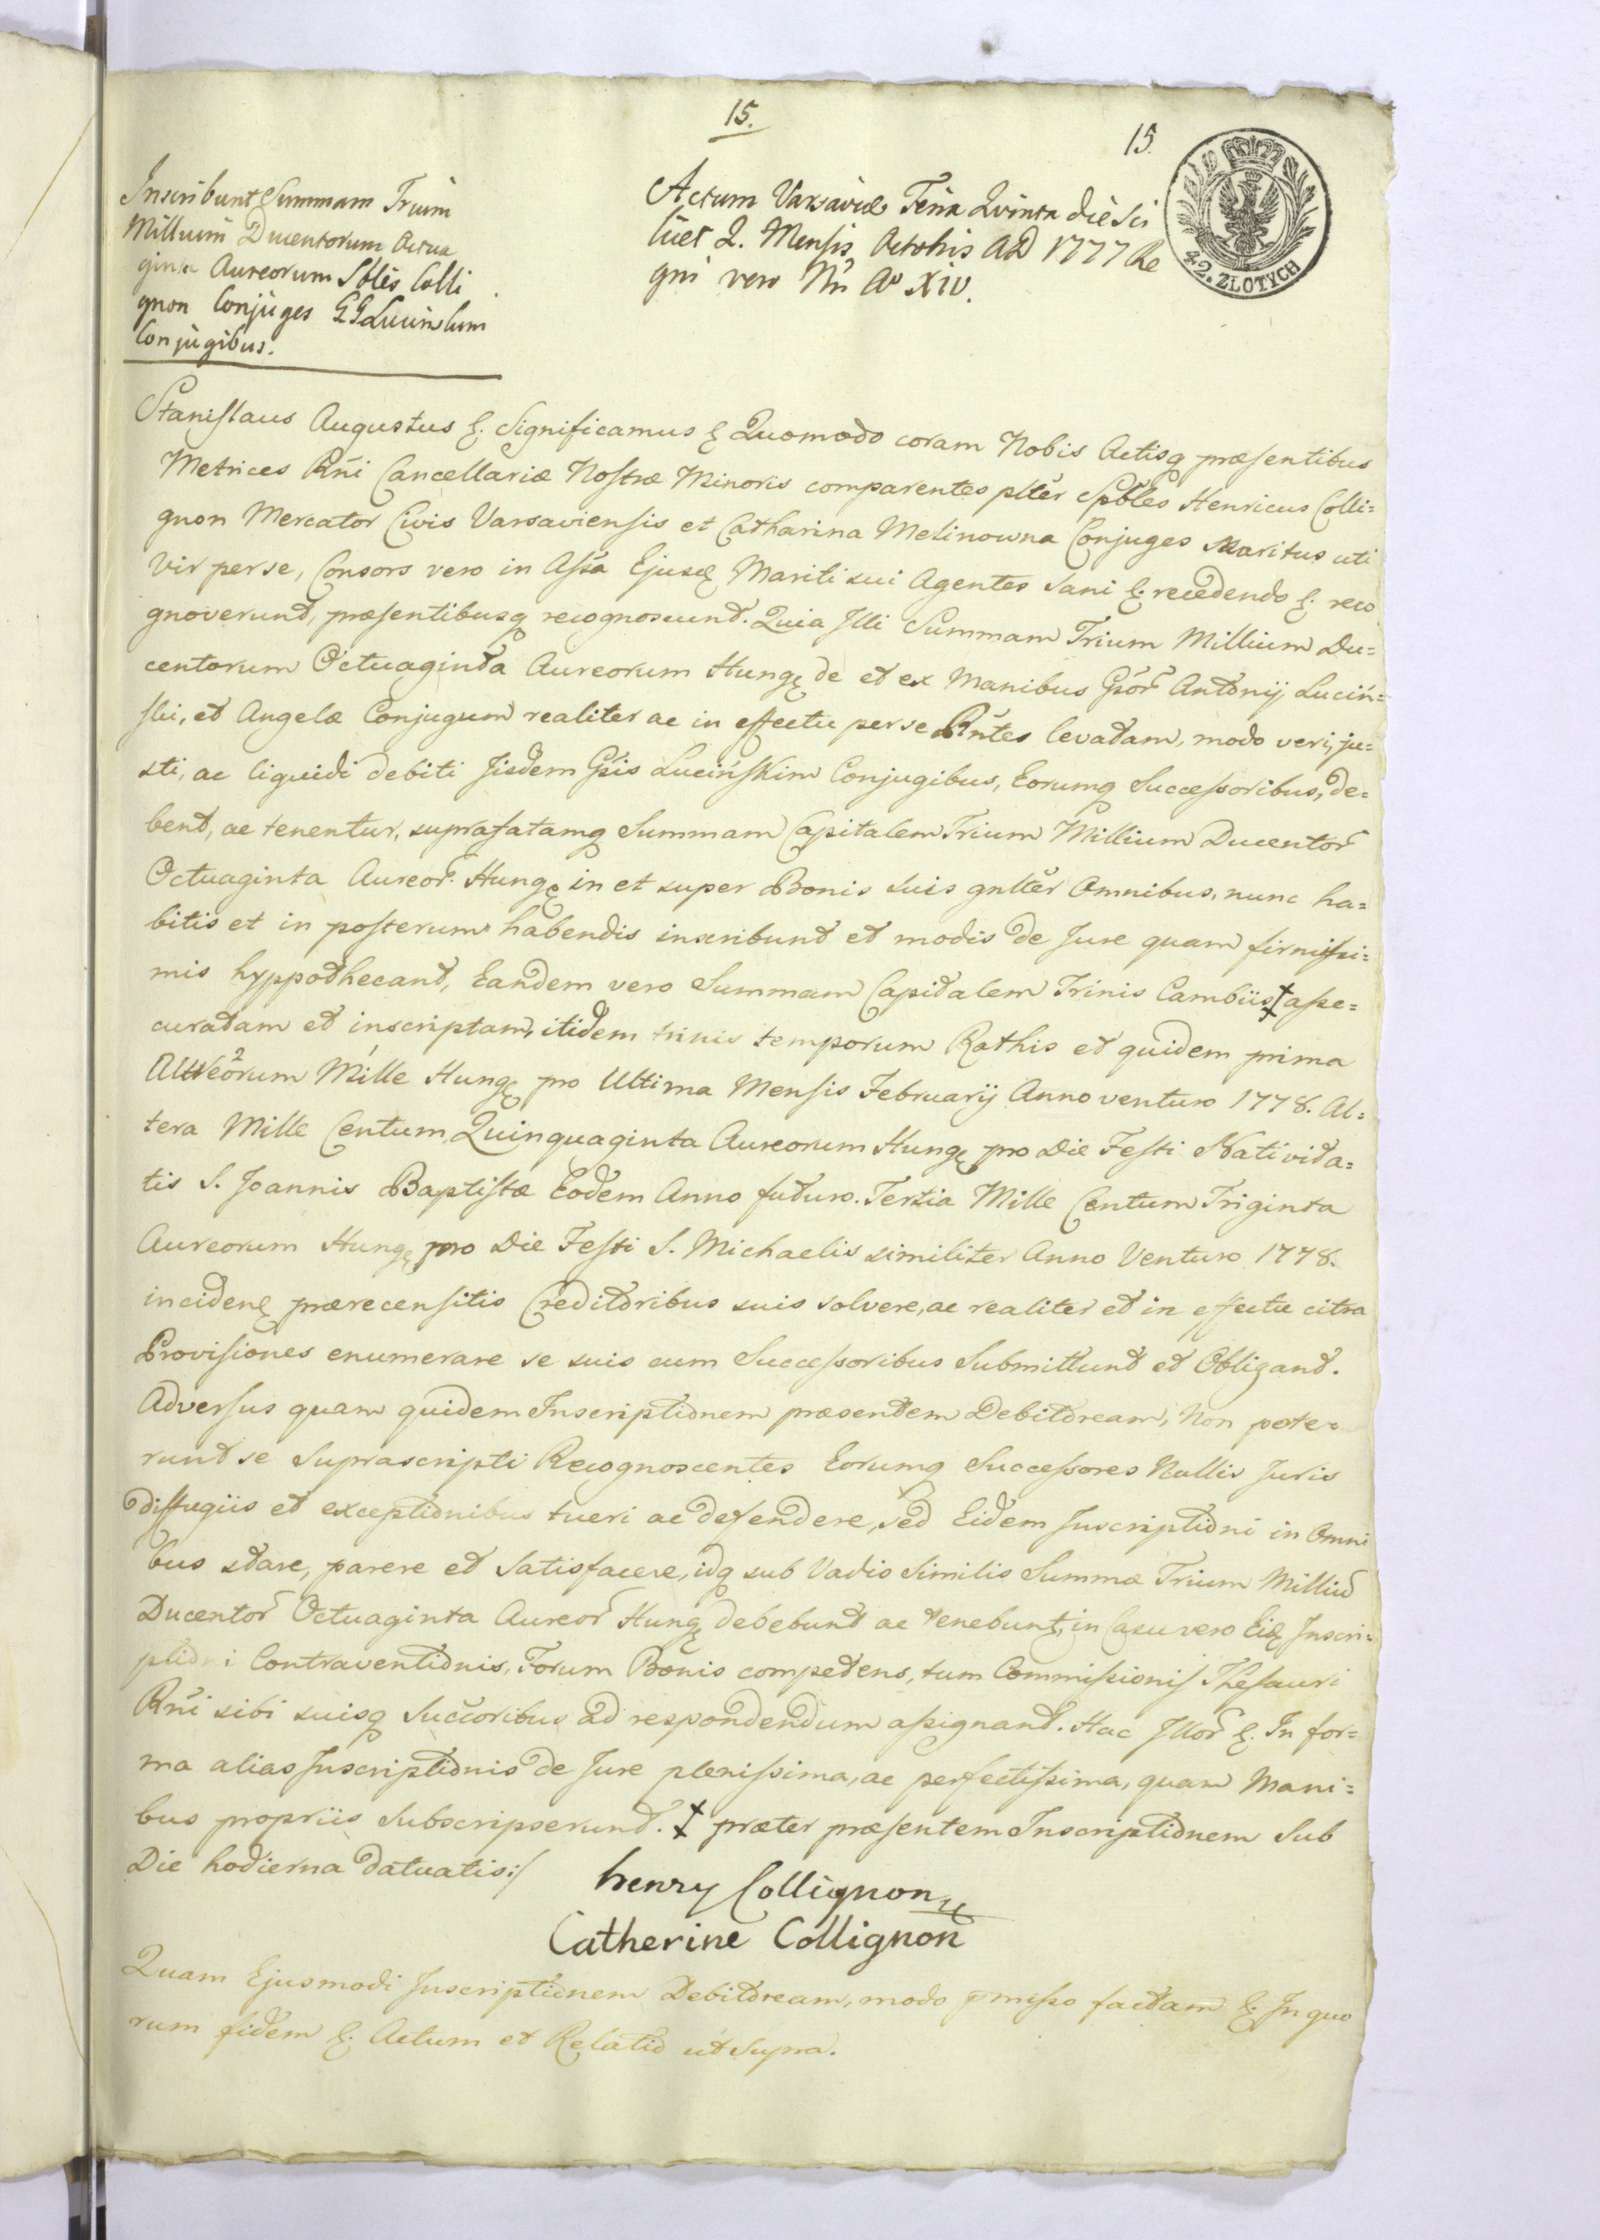 15.
15.
42. ZLOTYCH
Inscribunt Summam Trium
Millium Ducentorum Octua
ginta Aureorum Sbles Colli
gnon Conjuges GG Lucinskim
Conjugibus.
Actum Varsaviæ Feria Qvinta die sci
licet 2. Mensis Octobris AD 1777 Re
gni vero Nri Ao XIV.
Stanislaus Augustus &. Significamus & Quomodo coram Nobis Actisq præsentibus
Metrices Rni Cancellariæ Nostræ Minoris comparentes plter Spbles Henricus Colli=
gnon Mercator Civis Varsaviensis et Catharina Melinowna Conjuges Maritus uti
Vir per se, Consors vero in Assa Ejusd Mariti sui Agentes Sani &. recedendo &. reco
gnoverunt, præsentibusq recognoscunt. Quia Illi Summam Trium Millium Du=
centorum Octuaginta Aureorum Hung de et ex Manibus Gsor Antonij Luciń=
ski, et Angelæ Conjugum realiter ac in effectu per se Rntes levatam, modo veri, ju=
sti, ac liquidi debiti Iisdem Gsis Lucińskim Conjugibus, Eorumq Successoribus, de=
bent, ac tenentur, suprafatamq Summam Capitalem Trium Millium Ducentor
Octuaginta Aureor. Hung in et super Bonis suis gnlter Omnibus, nunc ha=
bitis et in posterum habendis inscribunt et modis de Jure quam firmissi=
mis hyppothecant, Eandem vero Summam Capitalem Trinis Cambiis ‡ asse=
curatam et inscriptam, itidem trinis temporum Rathis et quidem prima
Aureorum 2 Mille 1 Hung pro Ultima Mensis Februarij Anno venturo 1778. Al=
tera Mille Centum Quinquaginta Aureorum Hung pro Die Festi Nativita=
tis S. Joannis Baptistæ Eodem Anno futuro. Tertia Mille Centum Triginta
Aureorum Hung pro Die Festi S. Michaelis similiter Anno Venturo 1778.
inciden præcensitis Creditoribus suis solvere, ac realiter et in effectu citra
Provisiones enumerare se suis cum Successoribus Submittunt et Obligant.
Adversus quam quidem Inscriptionem præsentem Debitoream, Non pote=
runt se Suprascripti Recognoscentes Eorumq Successores Nullis Juris
diffugiis et exceptionibus tueri ac defendere, sed Eidem Inscriptioni in Omni
bus stare, parere et Satisfacere, idq sub Vadio Similis Summæ Trium Milliu
Ducentor Octuaginta Aureor Hung debebunt ac tenebunt, in Casu vero Eid Inscri=
ptioni Contraventionis, Forum Bonis competens, tum Commissionis Thesauri
Rni sibi suisq Succoribus ad respondendum assignant. Hac Illor &. In for=
ma alias Inscriptionis de Jure plenissima, ac perfectissima, quam Mani=
bus propriis Subscripserunt. ‡ præter præsentem Inscriptionem Sub
Die hodierna datuatis:/
henry Collignon
Catherine Collignon
Quam Ejusmodi Inscriptionem Debitoream, modo pmisso factam &. In quo
rum fidem &. Actum et Relatio ut Supra.